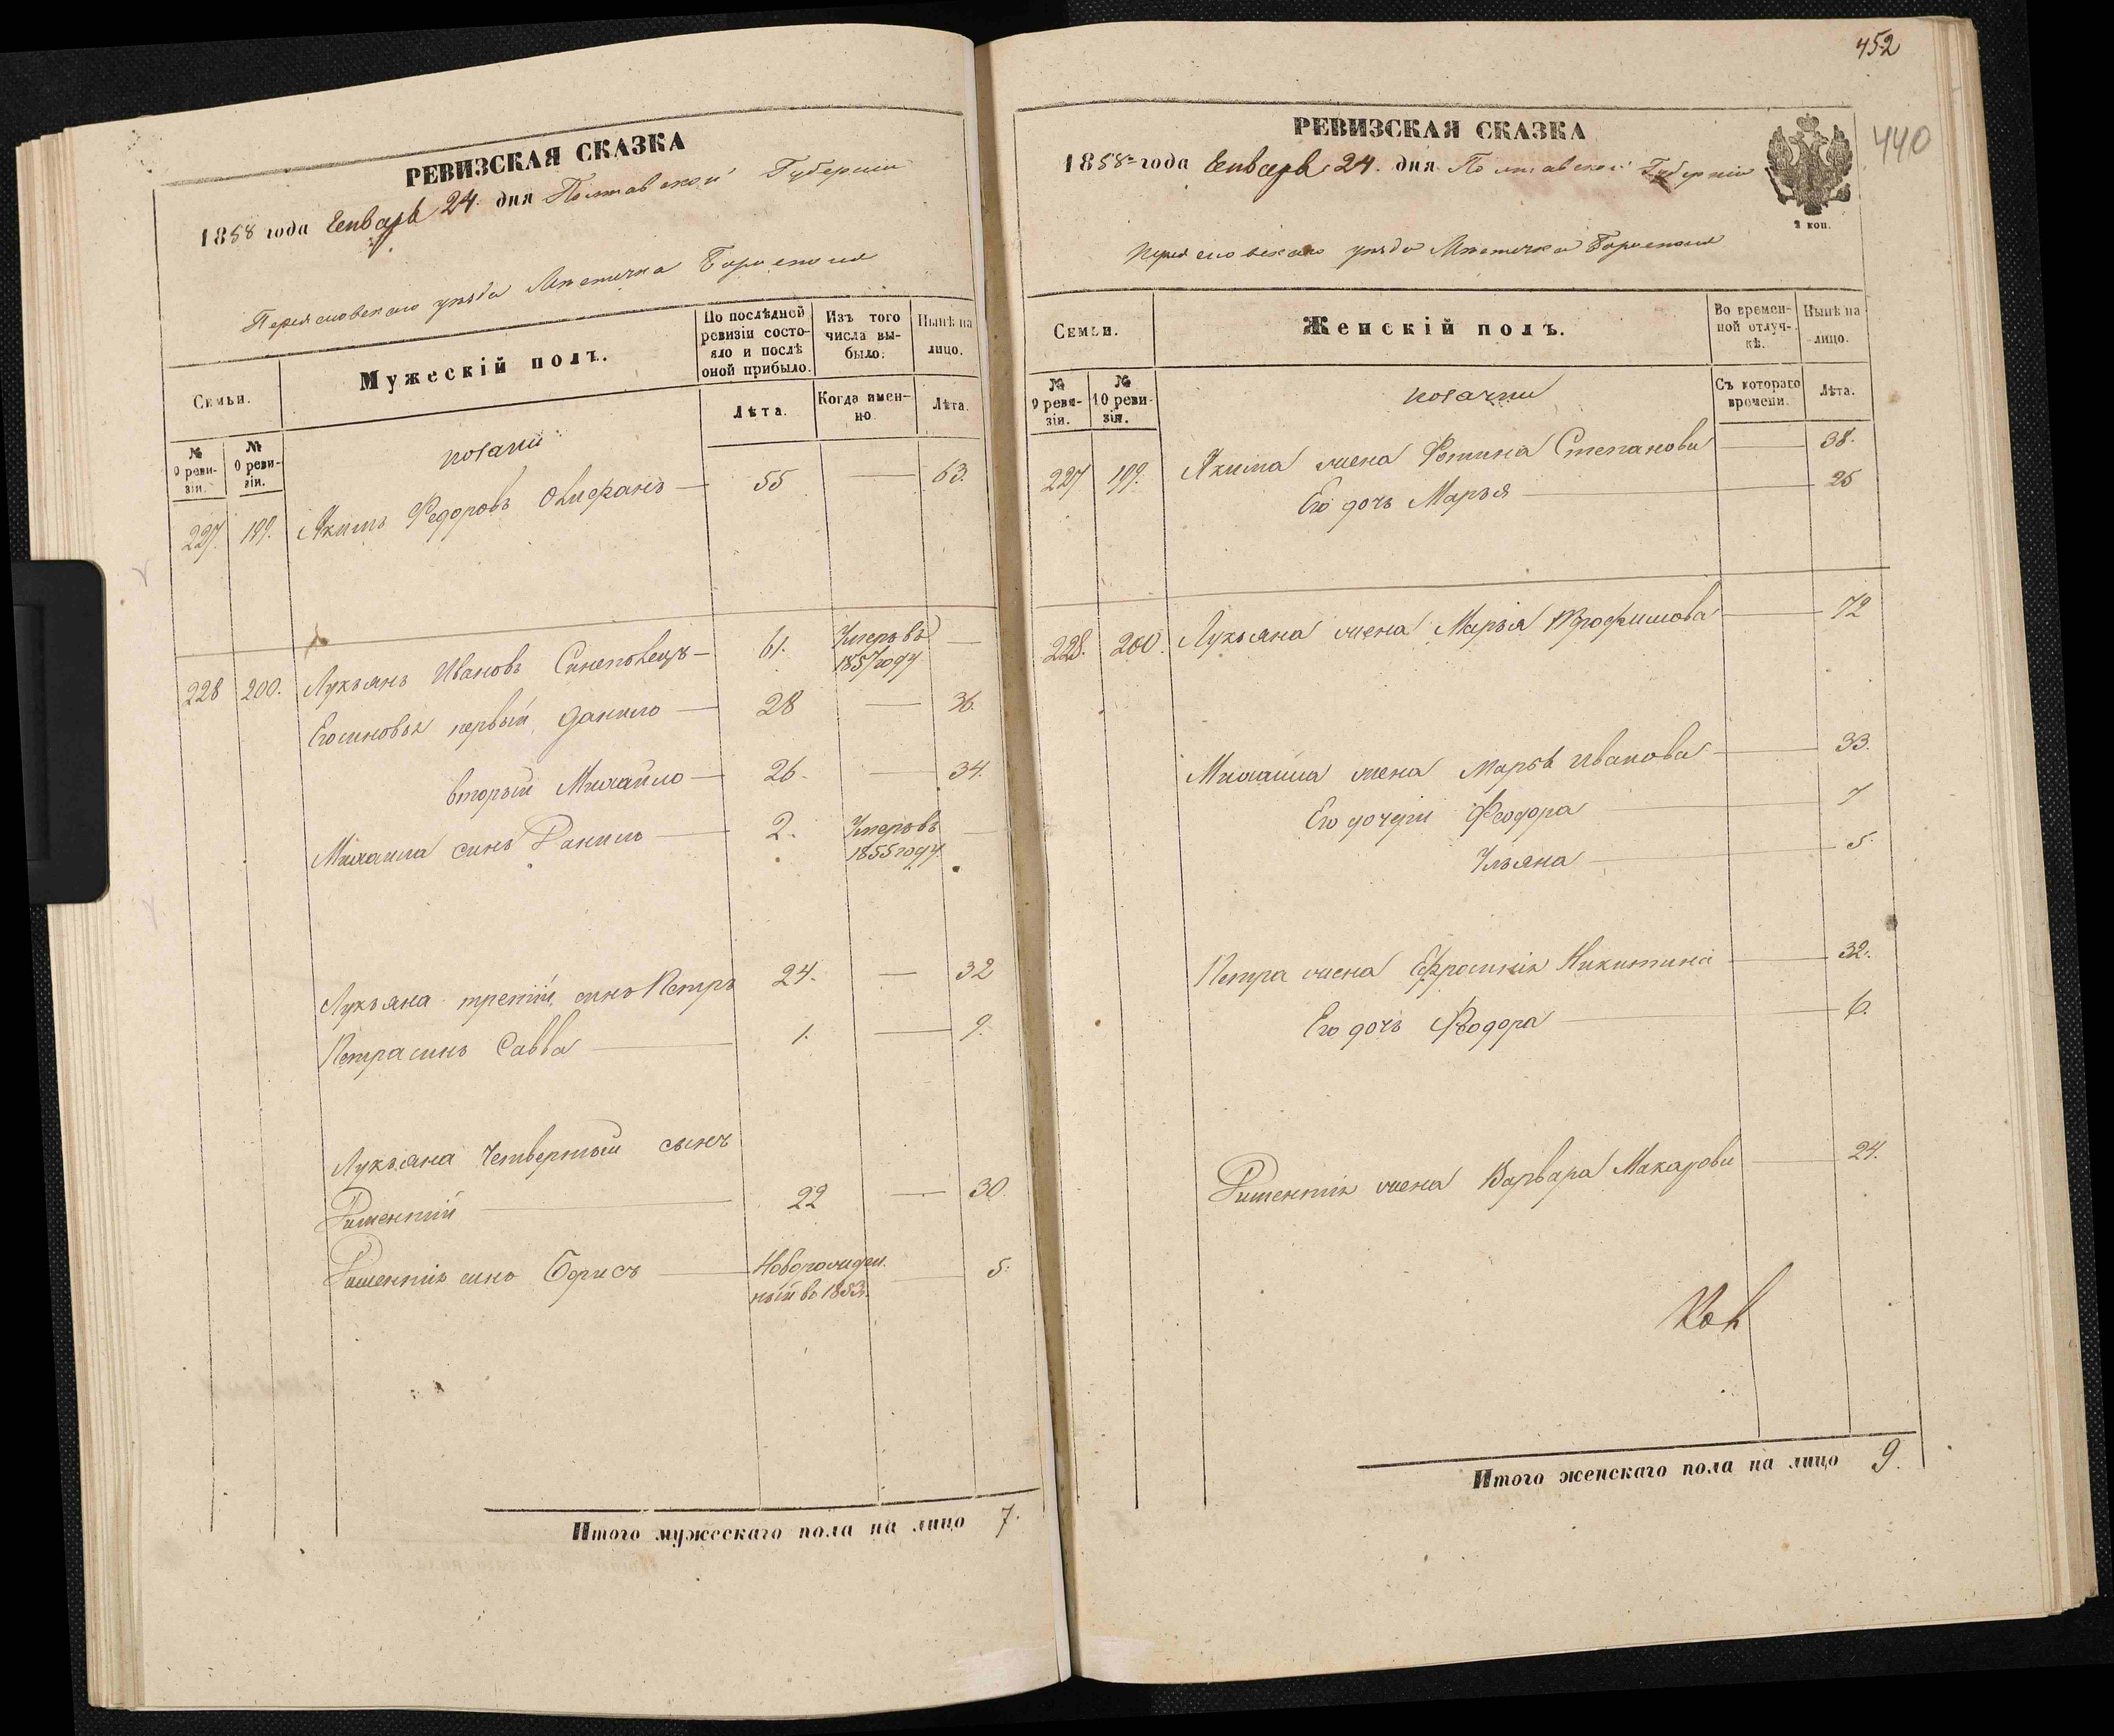 РЕВИЗСКАЯ СКАЗКА
1858 года Генваря 24. дня Полтавской Губернии
Переяславскаго уезда Местечка Борисполя
Семьи.
Мужескій полъ.
По послѣдней ревизіи состояло и послѣ оной прибыло.
Изъ того числа выбыло.
Нынѣ на лицо.
№ 9 ревизіи.
№ 10 ревизіи.
Лѣта.
Когда именно
Лѣта.
козаки
227. 199. Якимъ Федоровъ 55 — 63.
228 200. Лукьянъ Ивановъ Синеповецъ — 61. Умеръ въ 1857 году —
Его синовья первый Данило — 28 — 36.
вторый Михайло — 26. — 34.
Михаила синъ Данило — 2. Умеръ въ 1855 году. —
Лукьяна третій синъ Петръ 24. — 32
Петра синъ Савва — 1. — 9.
Лукьяна четвертый сынъ
22 — 30.
синъ Борисъ — Новорожден ный во 1853. — 5.
Итого мужескаго пола на лицо 7.
452
440
РЕВИЗСКАЯ СКАЗКА
1858 года Генваря 24. дня Полтавской Губерніи
2 коп.
Переяславскаго уезда Местечка Борисполя
Семьи.
Женскій полъ.
Во временной отлучкѣ.
Нынѣ на лицо.
№ 9 ревизіи.
№ 10 ревизія.
Съ котораго времени.
Лѣта.
козачки
227 199. Якима жена Фотина Степанова — 38.
Его дочь Марья — 25
228. 200. Лукьяна жена Марья Трофимова — 72
Михаила жена Марья Иванова — 33.
Его дочери Феодора — 7
Ульяна — 5.
Петра жена Ефросинія Никитина — 32.
Его дочь Феодора — 6.
жена Варвара Макарова — 24.
Итого женскаго пола на лицо 9.